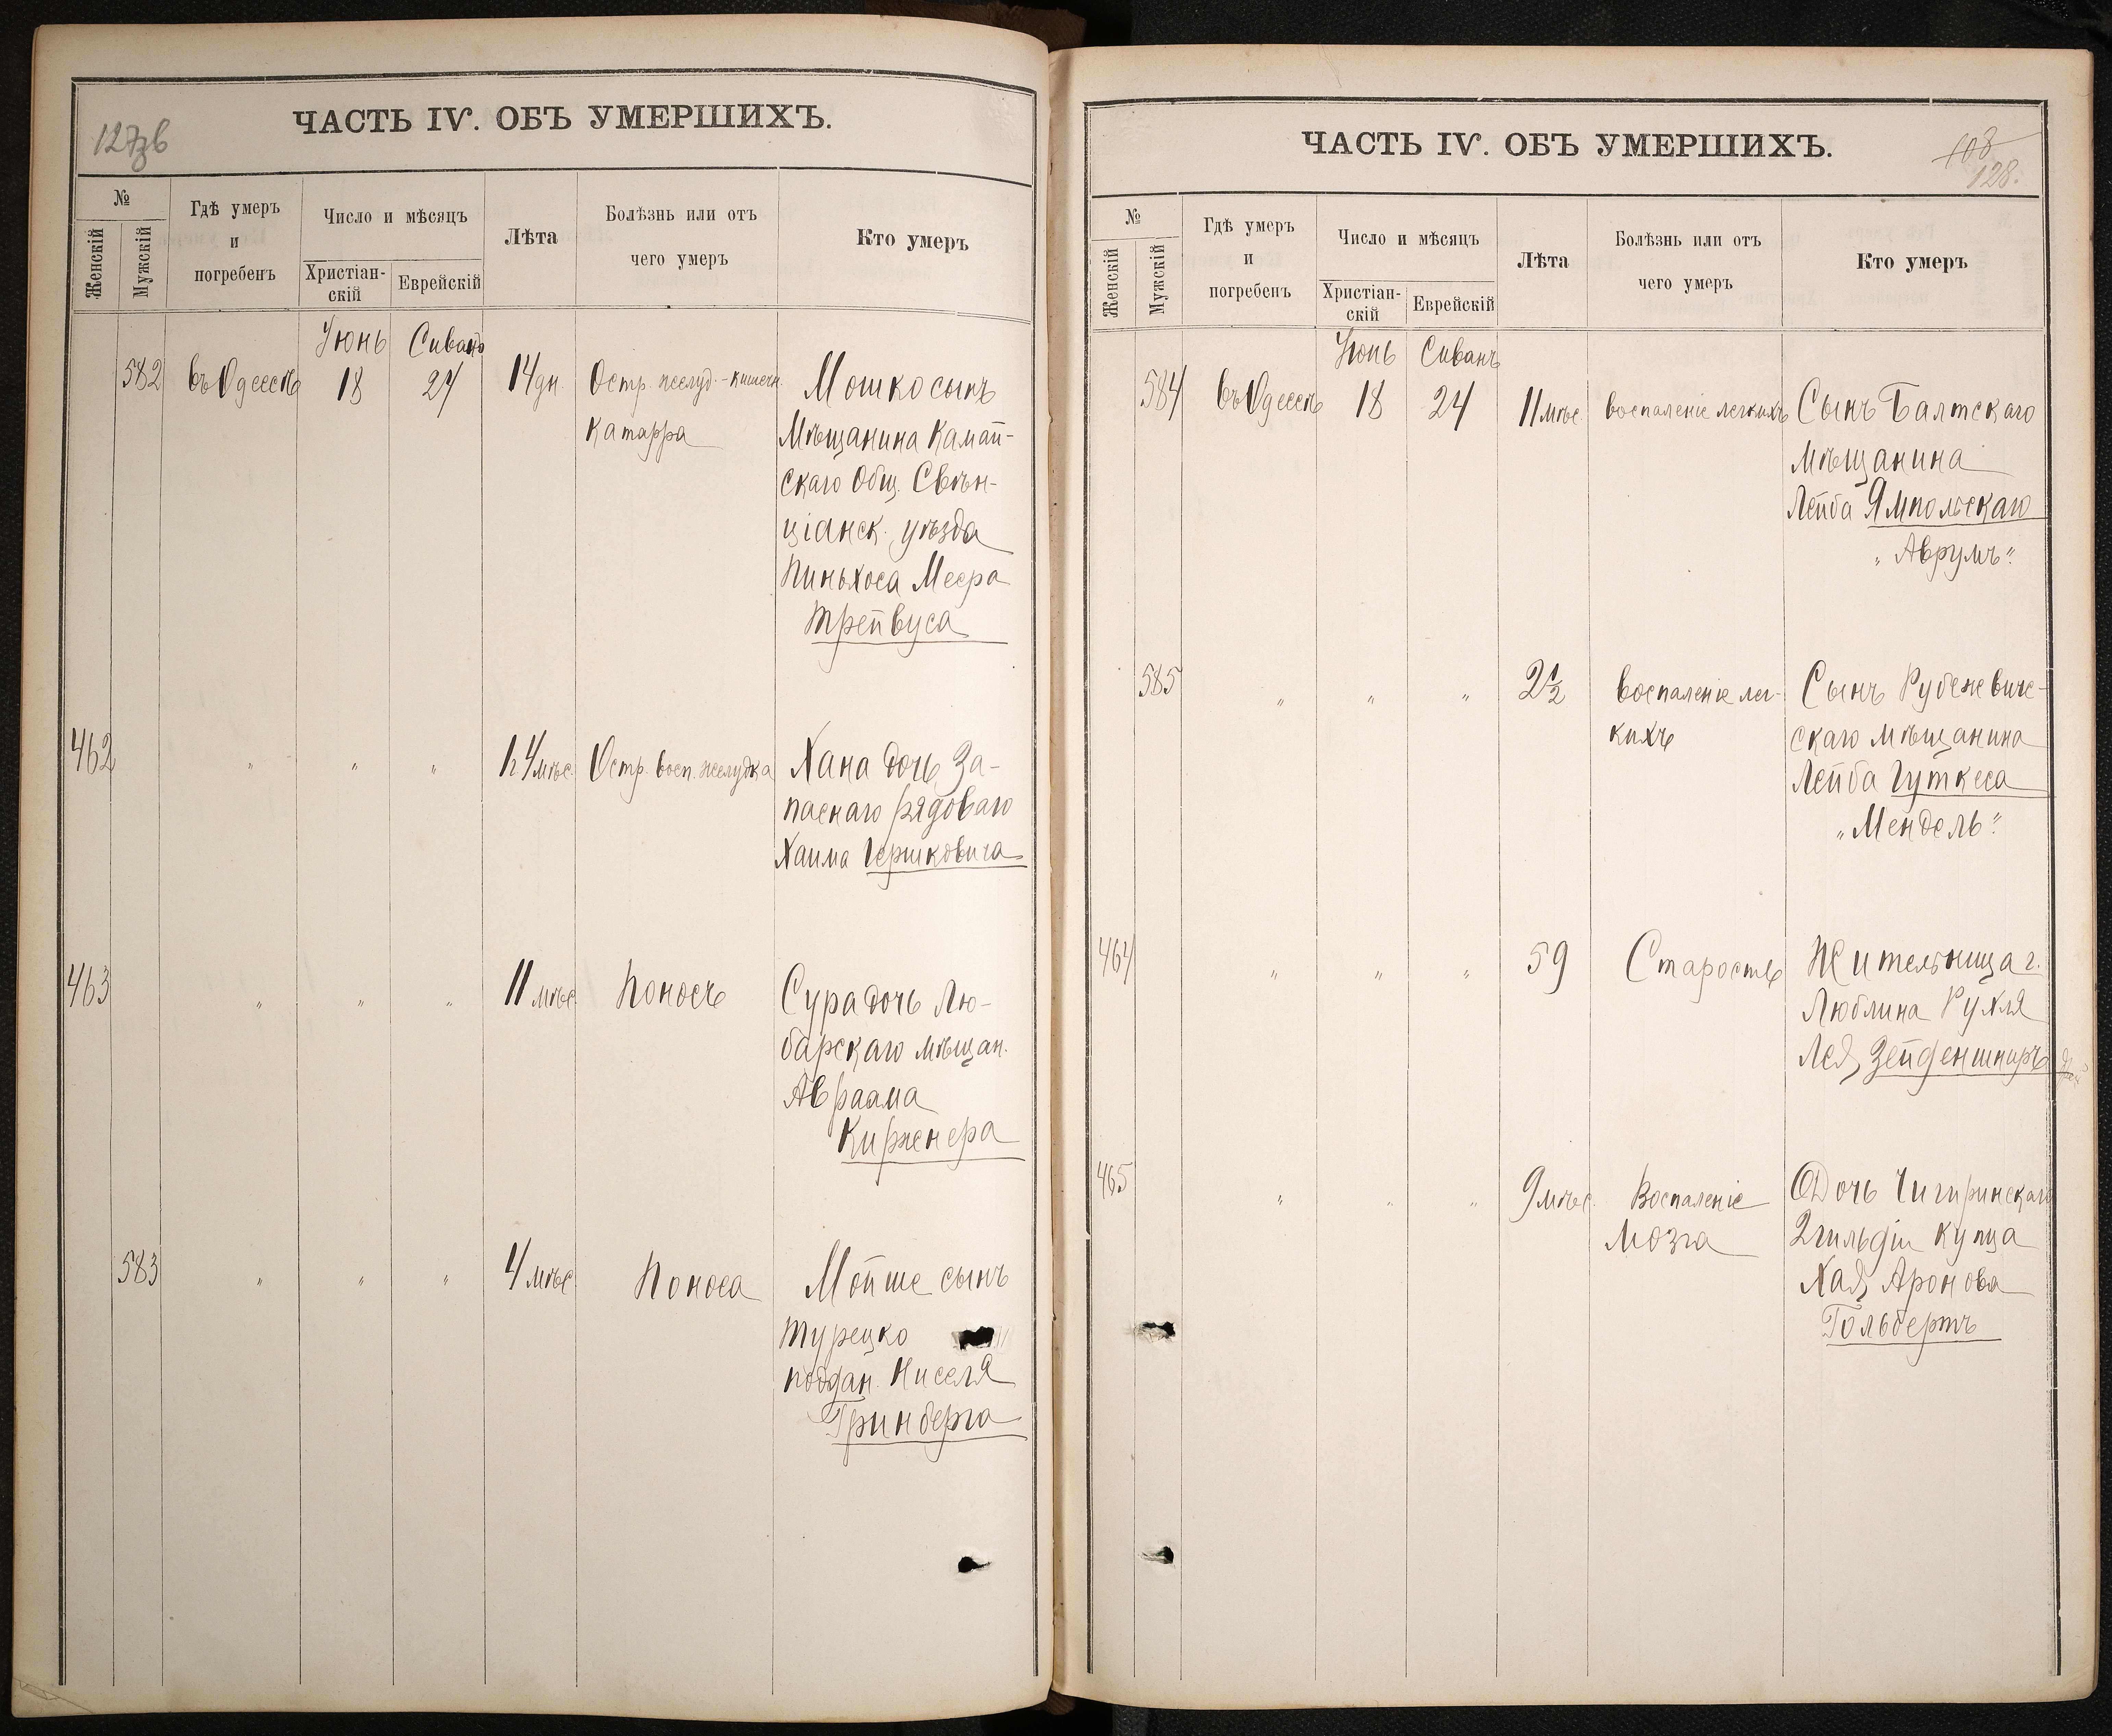 127зв
ЧАСТЬ IV. ОБЪ УМЕРШИХЪ.
№
Женскій
Мужскій
Гдѣ умеръ
и
погребенъ
Число и мѣсяцъ
Христіан-
скій
Еврейскій
Лѣта
Болѣзнь или отъ
чего умеръ
Кто умеръ
Іюнь Сиванъ
582 въ Одессѣ 18 24 14 дн. Остр. желуд.-кишечн. Мошко сынъ
катарра Мѣщанина Камай-
скаго Общ. Свѣн-
ціанск. уѣзда
Пиньхоса Меера
Трейвуса
462 " " " 4 мѣс. Остр. восп. желудка Хана дочь За-
паснаго рядоваго
Хаима Гершковича
463 " " " 11 мѣс. Поносъ Сура дочь Лю-
барскаго мѣщан.
Авраама
Кирженера
583 " " " 4 мѣс. Поноса Мойше сынъ
Турецко
поддан.Ниселя
Гринберга
108
128.
ЧАСТЬ IV. ОБЪ УМЕРШИХЪ.
№
Женскій
Мужскій
Гдѣ умеръ
и
погребенъ
Число и мѣсяцъ
Христіан-
скій
Еврейскій
Лѣта
Болѣзнь или отъ
чего умеръ
Кто умеръ
Іюнь Сиванъ
584 въ Одессѣ 18 24 11 мѣс. воспаленіе легкихъ Сынъ Балтскаго
мѣщанина
Лейба Ямпольскаго
„Аврумъ"
585 " " " 2 1/2 воспаленіе лег- Сынъ Рубеневиче-
кихъ скаго мѣщанина
Лейба Гуткеса
„Мендель"
464 " " " 59 Старость Жительница г.
Люблина Рухля
Лея Зейденшниръ
465 " " " 9 мѣс. Воспаленіе Дочь Чигиринскаго
мозга 2 гильдіи купца
Хая Аронова
Гольбертъ